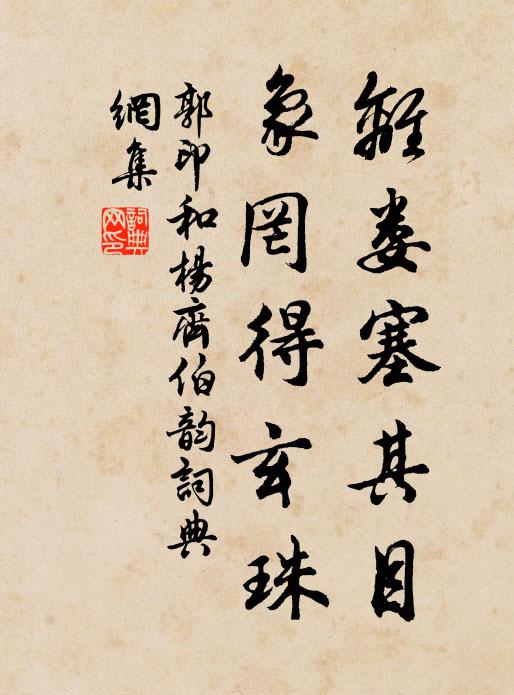 離婁塞其目
象罔得玄珠
郭印和楊濟伯韵詞典
網集
詞典
网印